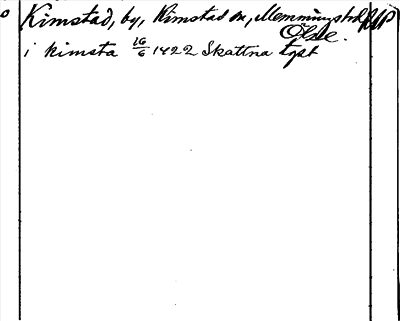 Kimstad, by, Kimstad sn, Memmings hd
Ög.
i kimsta 16/6 1422 Skattna